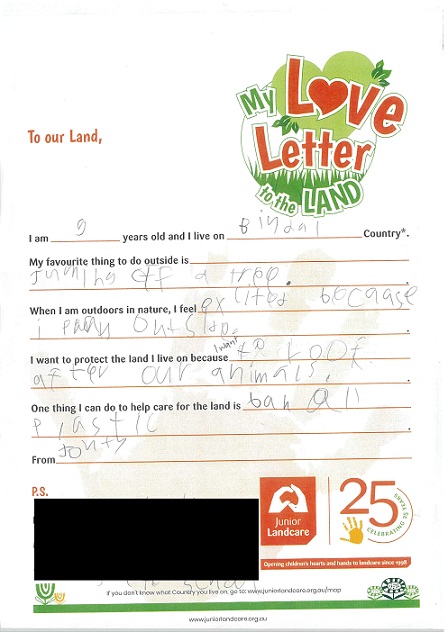 My Love
Letter
to the LAND
To our Land,
I am 9 years old and I live on Bindal Country*.
My favourite thing to do outside is
Jumping off a tree.
When I am outdoors in nature, I feel excited because
i outside.
I want to protect the land I live on because I want to
after our animals.
One thing I can do to help care for the land is ban all
plastic
From Jonty
P.S.
Junior
Landcare
25
CELEBRATING 25 YEARS
Opening children's hearts and hands to landcare since 1998
If you don't know what Country you live on, go to: www.juniorlandcare.org.au/map
www.juniorlandcare.org.au